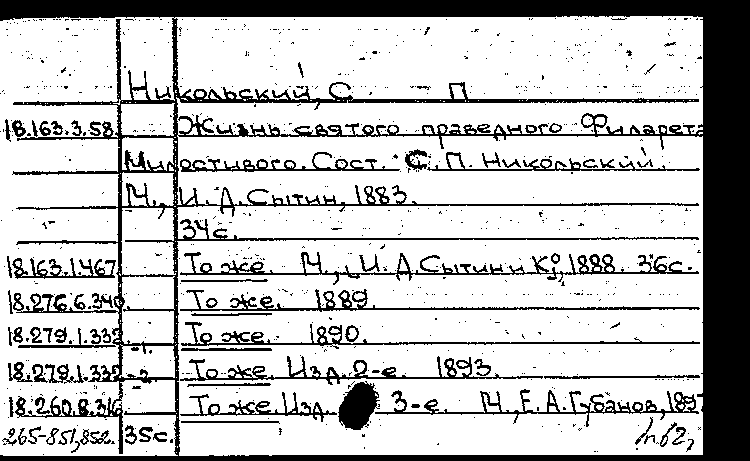 Никольский, С П
18.163.3.58. Жизнь святого праведного Филарета
Милостивого. Сост. С. П. Никольский.
М., И. Д. Сытин, 1883.
34 с.
18.163.1.467 То же. М., И. Д. Сытин и Кº, 1888. 36 с.
18.276.6.340. То же. 1889.
18.279.1.332 То же. 1890.
-1.
18.279.1.332 -2 То же. Изд. 2-е. 1893.
18.260.8.316. То же. Изд. 3-е. М., Е. А. Губанов,
265-851,852. 35 с.